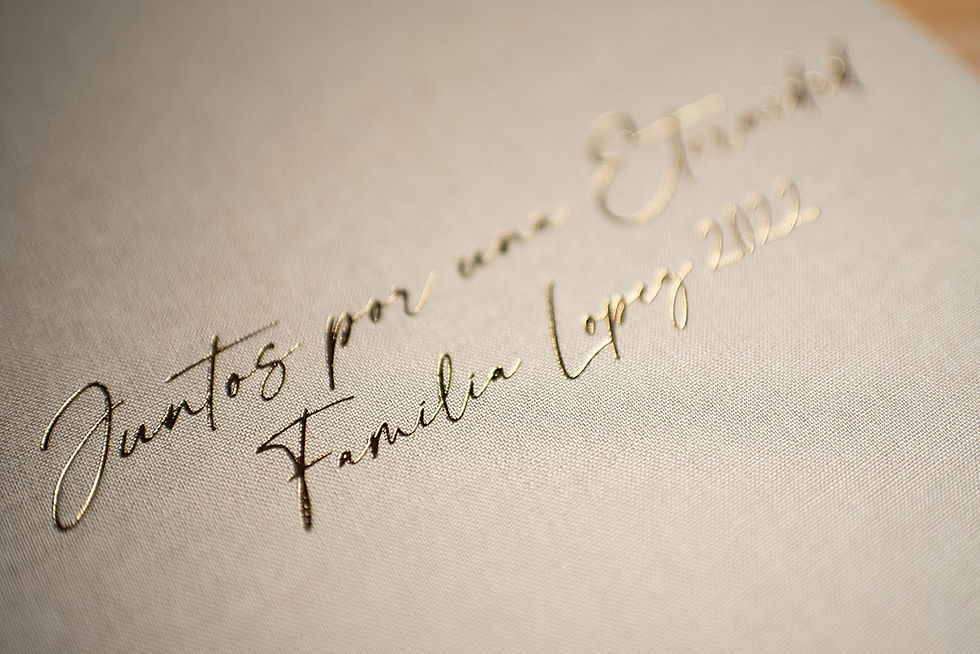 Juntos por una Eternidad
Familia Lopez 2022